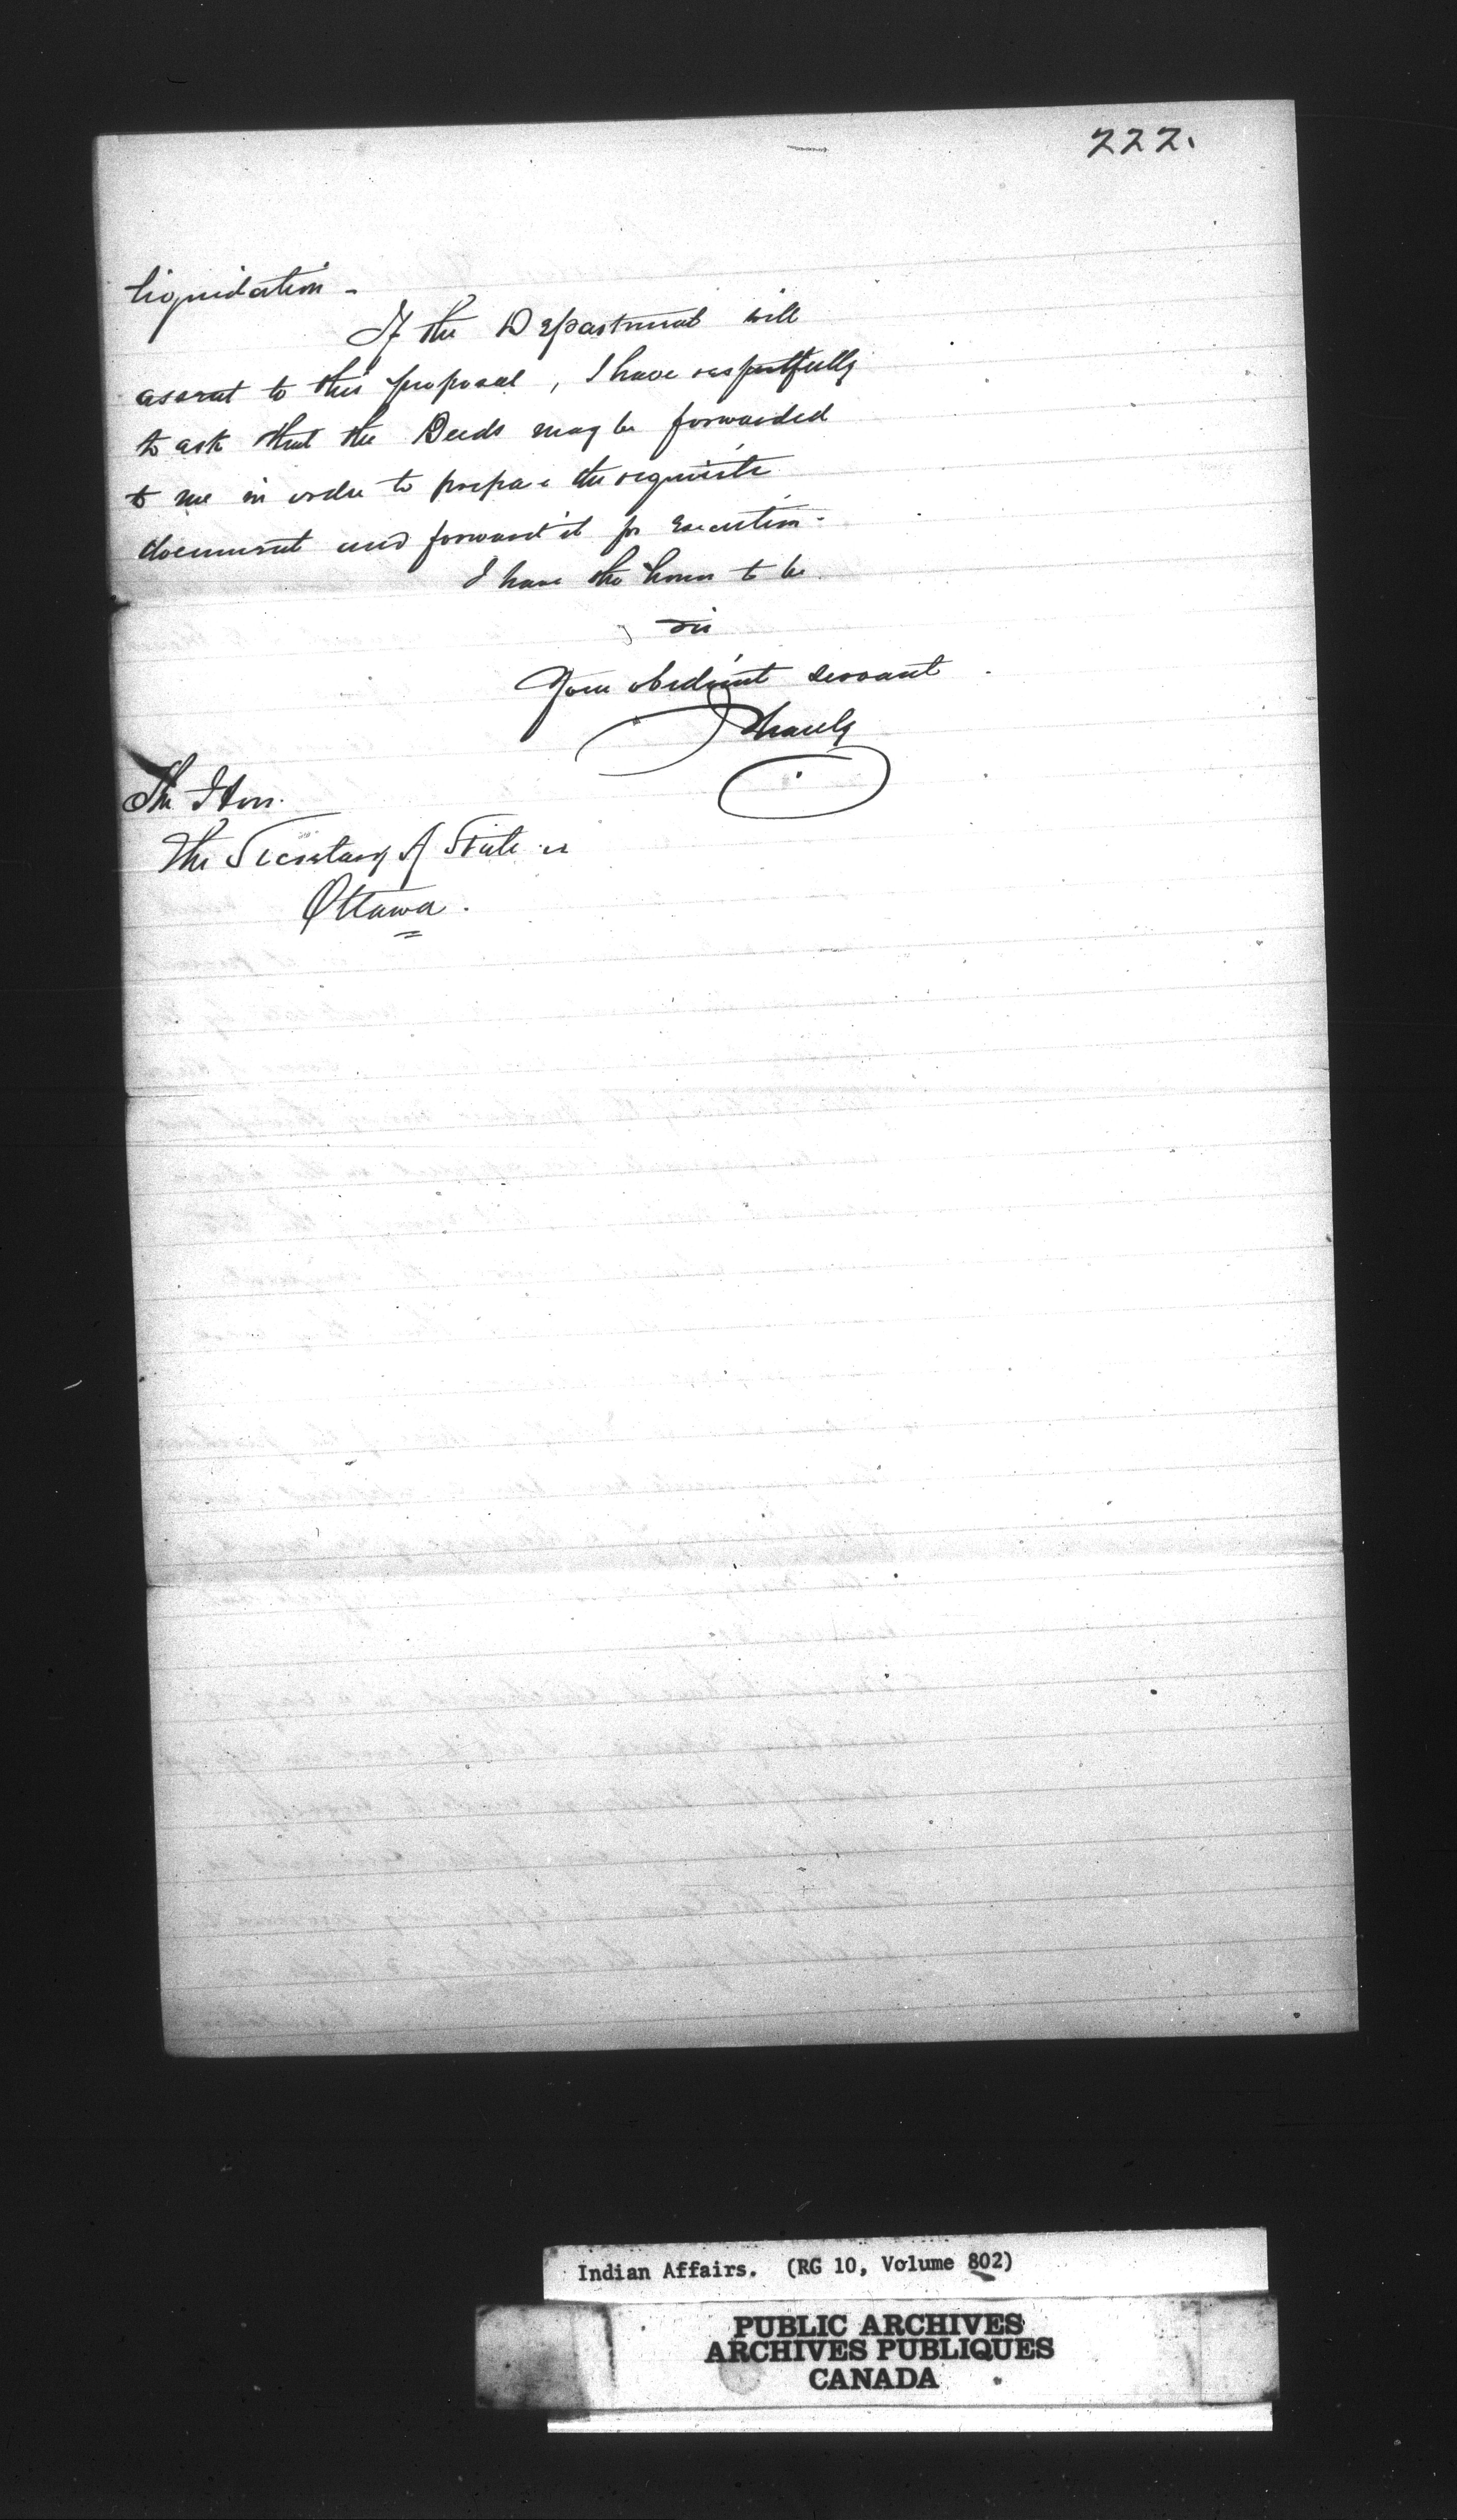 222.
liquidation -
If the Department will
assent to this proposal, I have respectfully
to ask that the Deeds may be forwarded
to me in order to prepare the requisite
document and forward it for execution -
I have the honor to be
Sir
Your obedient servant
The Hon.
The Secretary of State
Ottawa.
Indian Affairs. (RG 10, Volume 802)
PUBLIC ARCHIVES
ARCHIVES PUBLIQUES
CANADA